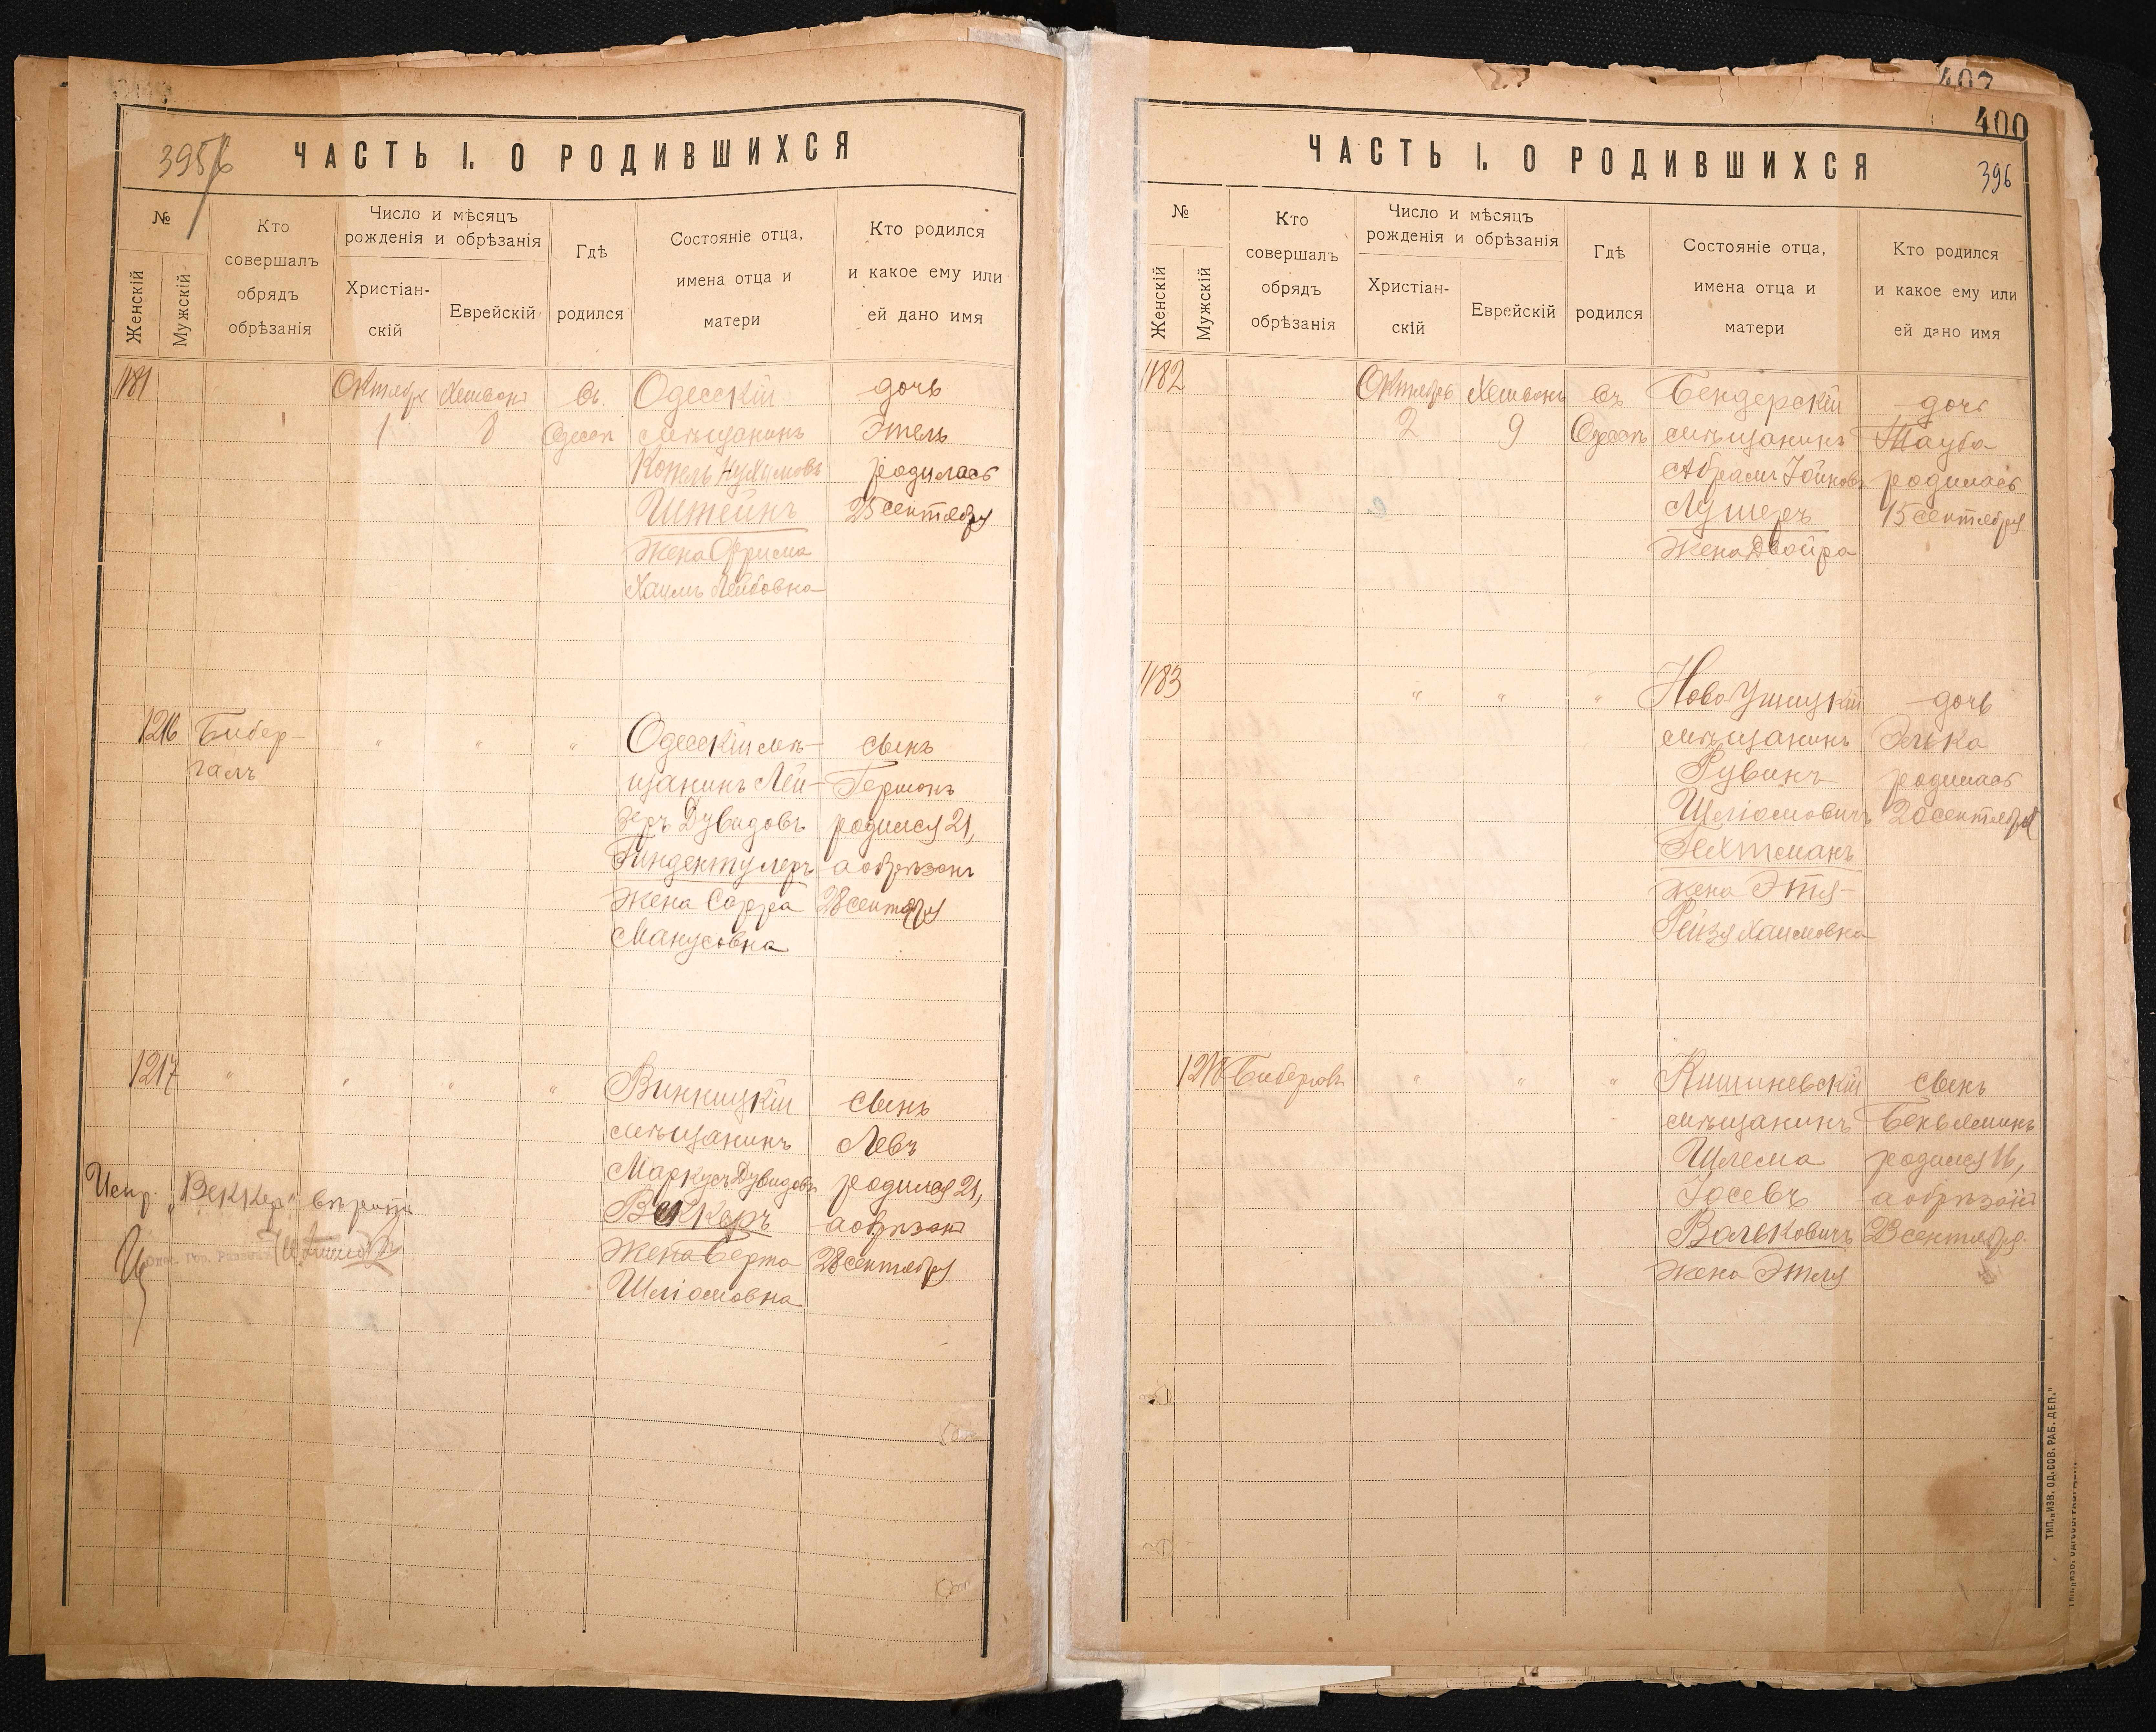 395/6
ЧАСТЬ I. О РОДИВШИХСЯ
№
Женскій
Мужскій
Кто
совершалъ
обрядъ
обрѣзанія
Число и мѣсяцъ
рожденія и обрѣзанія
Христіан-
скій
Еврейскій
Гдѣ
родился
Состояніе отца,
имена отца и
матери
Кто родился
и какое ему или
ей дано имя
1181
Октябрь
1
Хешвонъ
8
въ
Одессѣ
Одесскій
мѣщанинъ
Копель Нухимовъ
Штейнъ
жена Фрима
Хаимъ Лейбовна
дочь
Этель
родилась
25 сентября
1216
Бибер-
галъ
"
"
"
Одесскій мѣ-
щанинъ Лей-
зеръ Дувидовъ
Гиндентулеръ
жена Сарра
Манусовна
сынъ
Гершонъ
родился 21,
а обрѣзанъ
28 сентября
1217
"
"
"
"
Винницкій
мѣщанинъ
Маркусъ Дувидовъ
Веккеръ
жена Берта
Шліомовна
сынъ
Левъ
родился 21,
а обрѣзанъ
28 сентября
Испр. "Веккеръ"
400
ЧАСТЬ I. О РОДИВШИХСЯ
396
№
Женскій
Мужскій
Кто
совершалъ
обрядъ
обрѣзанія
Число и мѣсяцъ
рожденія и обрѣзанія
Христіан-
скій
Еврейскій
Гдѣ
родился
Состояніе отца,
имена отца и
матери
Кто родился
и какое ему или
ей дано имя
1182
Октябрь
2
Хешвонъ
9
въ
Одессѣ
Бендерскій
мѣщанинъ
Абрамъ Іойновъ
Лушеръ
жена Двойра
дочь
Тауба
родилась
15 сентября
1183
"
"
"
Ново Ушицкій
мѣщанинъ
Рувинъ
Шліомовичъ
Гехтманъ
жена Этя-
Рейзя Хаимовна
дочь
Элька
родилась
20 сентября
1218
Бибергалъ
"
"
"
Кишиневскій
мѣщанинъ
Шлема
Іосевъ
Вальковичъ
жена Этля
сынъ
Беньяминъ
родился 16,
а обрѣзанъ
23 сентября
ТИП. „ИЗВ. ОД. СОВ. РАБ. ДЕП."